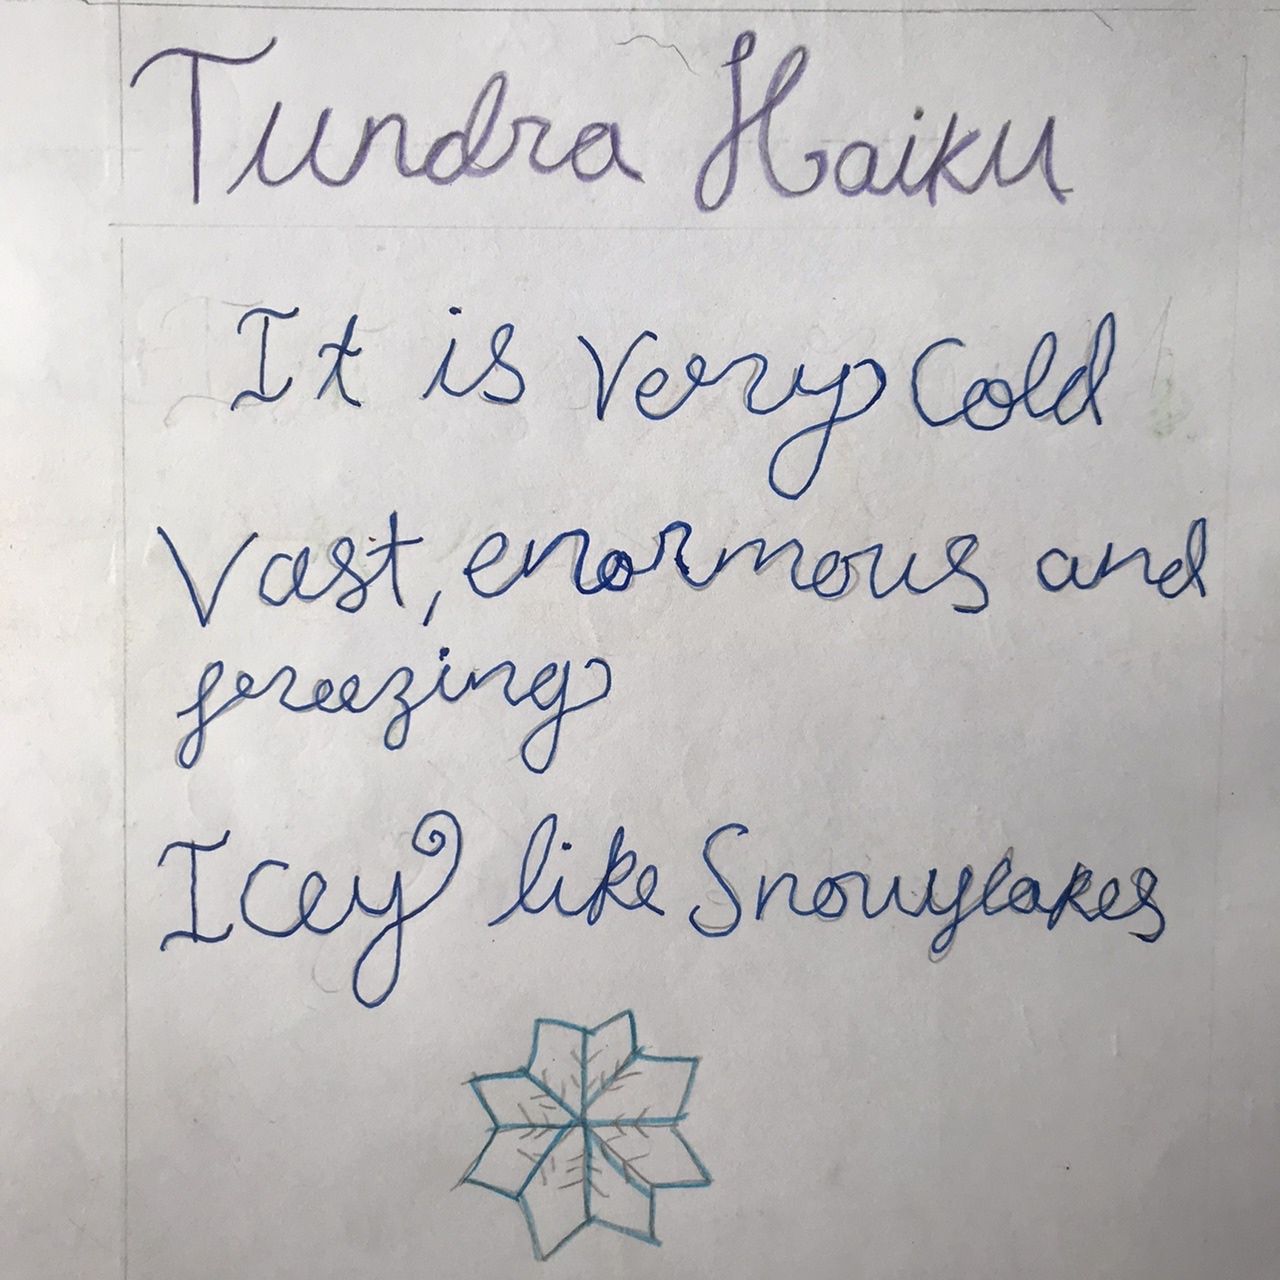 Tundra Haiku
It is Very Cold
Vast, enormous and
freezing
Icey like Snowflakes